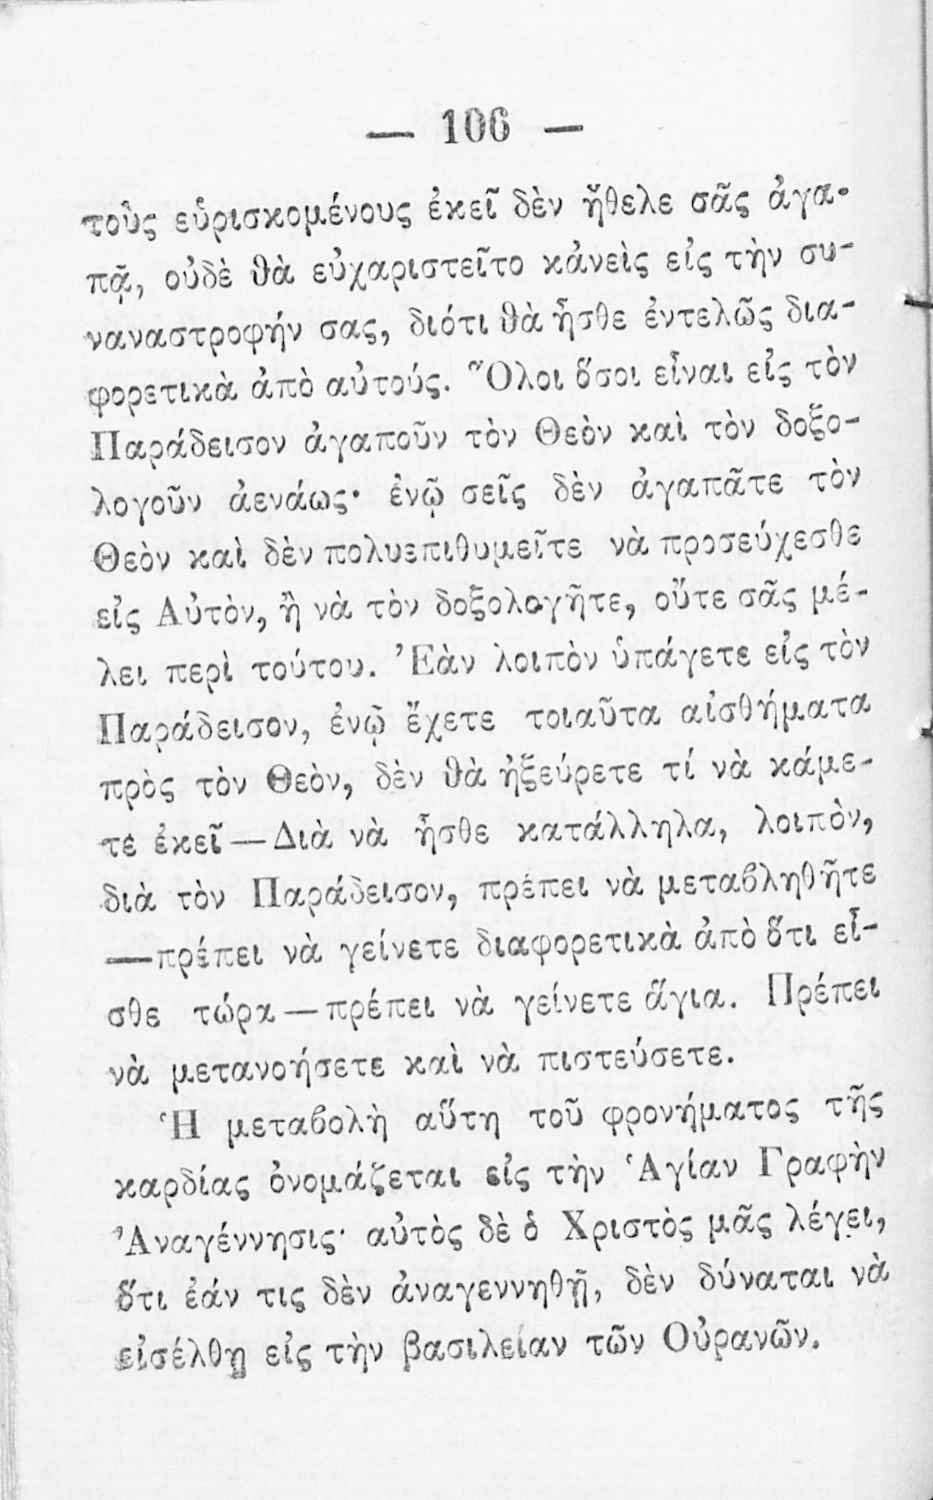 — 106 —
τοὺς εὑρισκομένους ἐκεῖ δὲν ἤθελε σᾶς ἀγα-
πᾷ, οὐδὲ θὰ εὐχαριστεῖτο κἀνεὶς εἰς τὴν συ-
ναναστροφήν σας, διότι θὰ ἦσθε ἐντελῶς δια-
φορετικὰ ἀπὸ αὐτούς. Ὅλοι ὅσοι εἶναι εἰς τὸν
Παράδεισον ἀγαποῦν τὸν Θεὸν καὶ τὸν δοξο-
λογοῦν ἀενάως· ἐνῷ σεῖς δὲν ἀγαπᾶτε τὸν
Θεὸν καὶ δὲν πολυεπιθυμεῖτε νὰ προσεύχεσθε
εἰς Αὐτὸν, ἢ νὰ τὸν δοξολογῆτε, οὔτε σᾶς μέ-
λει περὶ τούτου. Ἐὰν λοιπὸν ὑπάγετε εἰς τὸν
Παράδεισον, ἐνῷ ἔχετε τοιαῦτα αἰσθήματα
πρὸς τὸν Θεὸν, δὲν θὰ ἠξεύρετε τί νὰ κάμε-
τε ἐκεῖ — Διὰ νὰ ἦσθε κατάλληλα, λοιπὸν,
διὰ τὸν Παράδεισον, πρέπει νὰ μεταβληθῆτε
— πρέπει νὰ γείνετε διαφορετικὰ ἀπὸ ὅτι εἶ-
σθε τώρα — πρέπει νὰ γείνετε ἅγια. Πρέπει
νὰ μετανοήσετε καὶ νὰ πιστεύσετε.
Ἡ μεταβολὴ αὕτη τοῦ φρονήματος τῆς
καρδίας ὀνομάζεται εἰς τὴν Ἁγίαν Γραφὴν
Ἀναγέννησις· αὐτὸς δὲ ὁ Χριστὸς μᾶς λέγει,
ὅτι ἐάν τις δὲν ἀναγεννηθῇ, δὲν δύναται νὰ
εἰσέλθῃ εἰς τὴν βασιλείαν τῶν Οὐρανῶν.